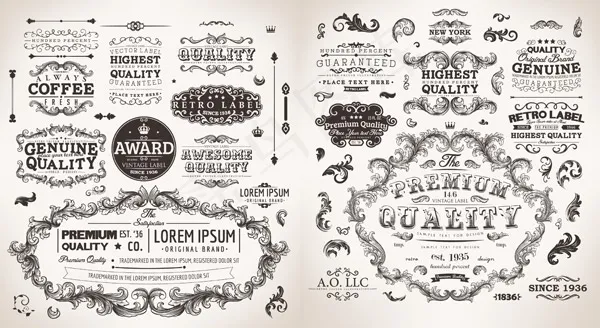 HUNDRED PERCENT
GUARANTEED
ALWAYS
COFFEE
FRESH
VECTOR LABEL
HIGHEST
HUNDRED PERCENT
QUALITY
GUARANTEED
QUALITY
RETRO LABEL
SINCE 1936
GENUINE
QUALITY
AWARD
VINTAGE LABEL
SINCE 1936
AWESOME
QUALITY
LOREM IPSUM
ORIGINAL BRAND
The
Satisfaction
PREMIUM EST. '36
QUALITY ★ CO.
Premium Quality
LOREM IPSUM,
· ORIGINAL BRAND ·
TRADEMARKED IN THE LOREM IPSUM, REGISTERED OF SATISFACTION
TRADEMARKED IN THE LOREM IPSUM, REGISTERED
NEW YORK
HUNDRED PERCENT
GUARANTEED
HIGHEST
HUNDRED PERCENT
QUALITY
QUALITY
Original Brand
GENUINE
Premium Quality
Place Your Text Here
RETRO LABEL
HIGHEST QUALITY
The
PREMIUM
146
VINTAGE LABEL
QUALITY
SAMPLE TEXT FOR DESIGN
est. 1935
hundred percent
design
A.O. LLC
1836
SINCE 1936